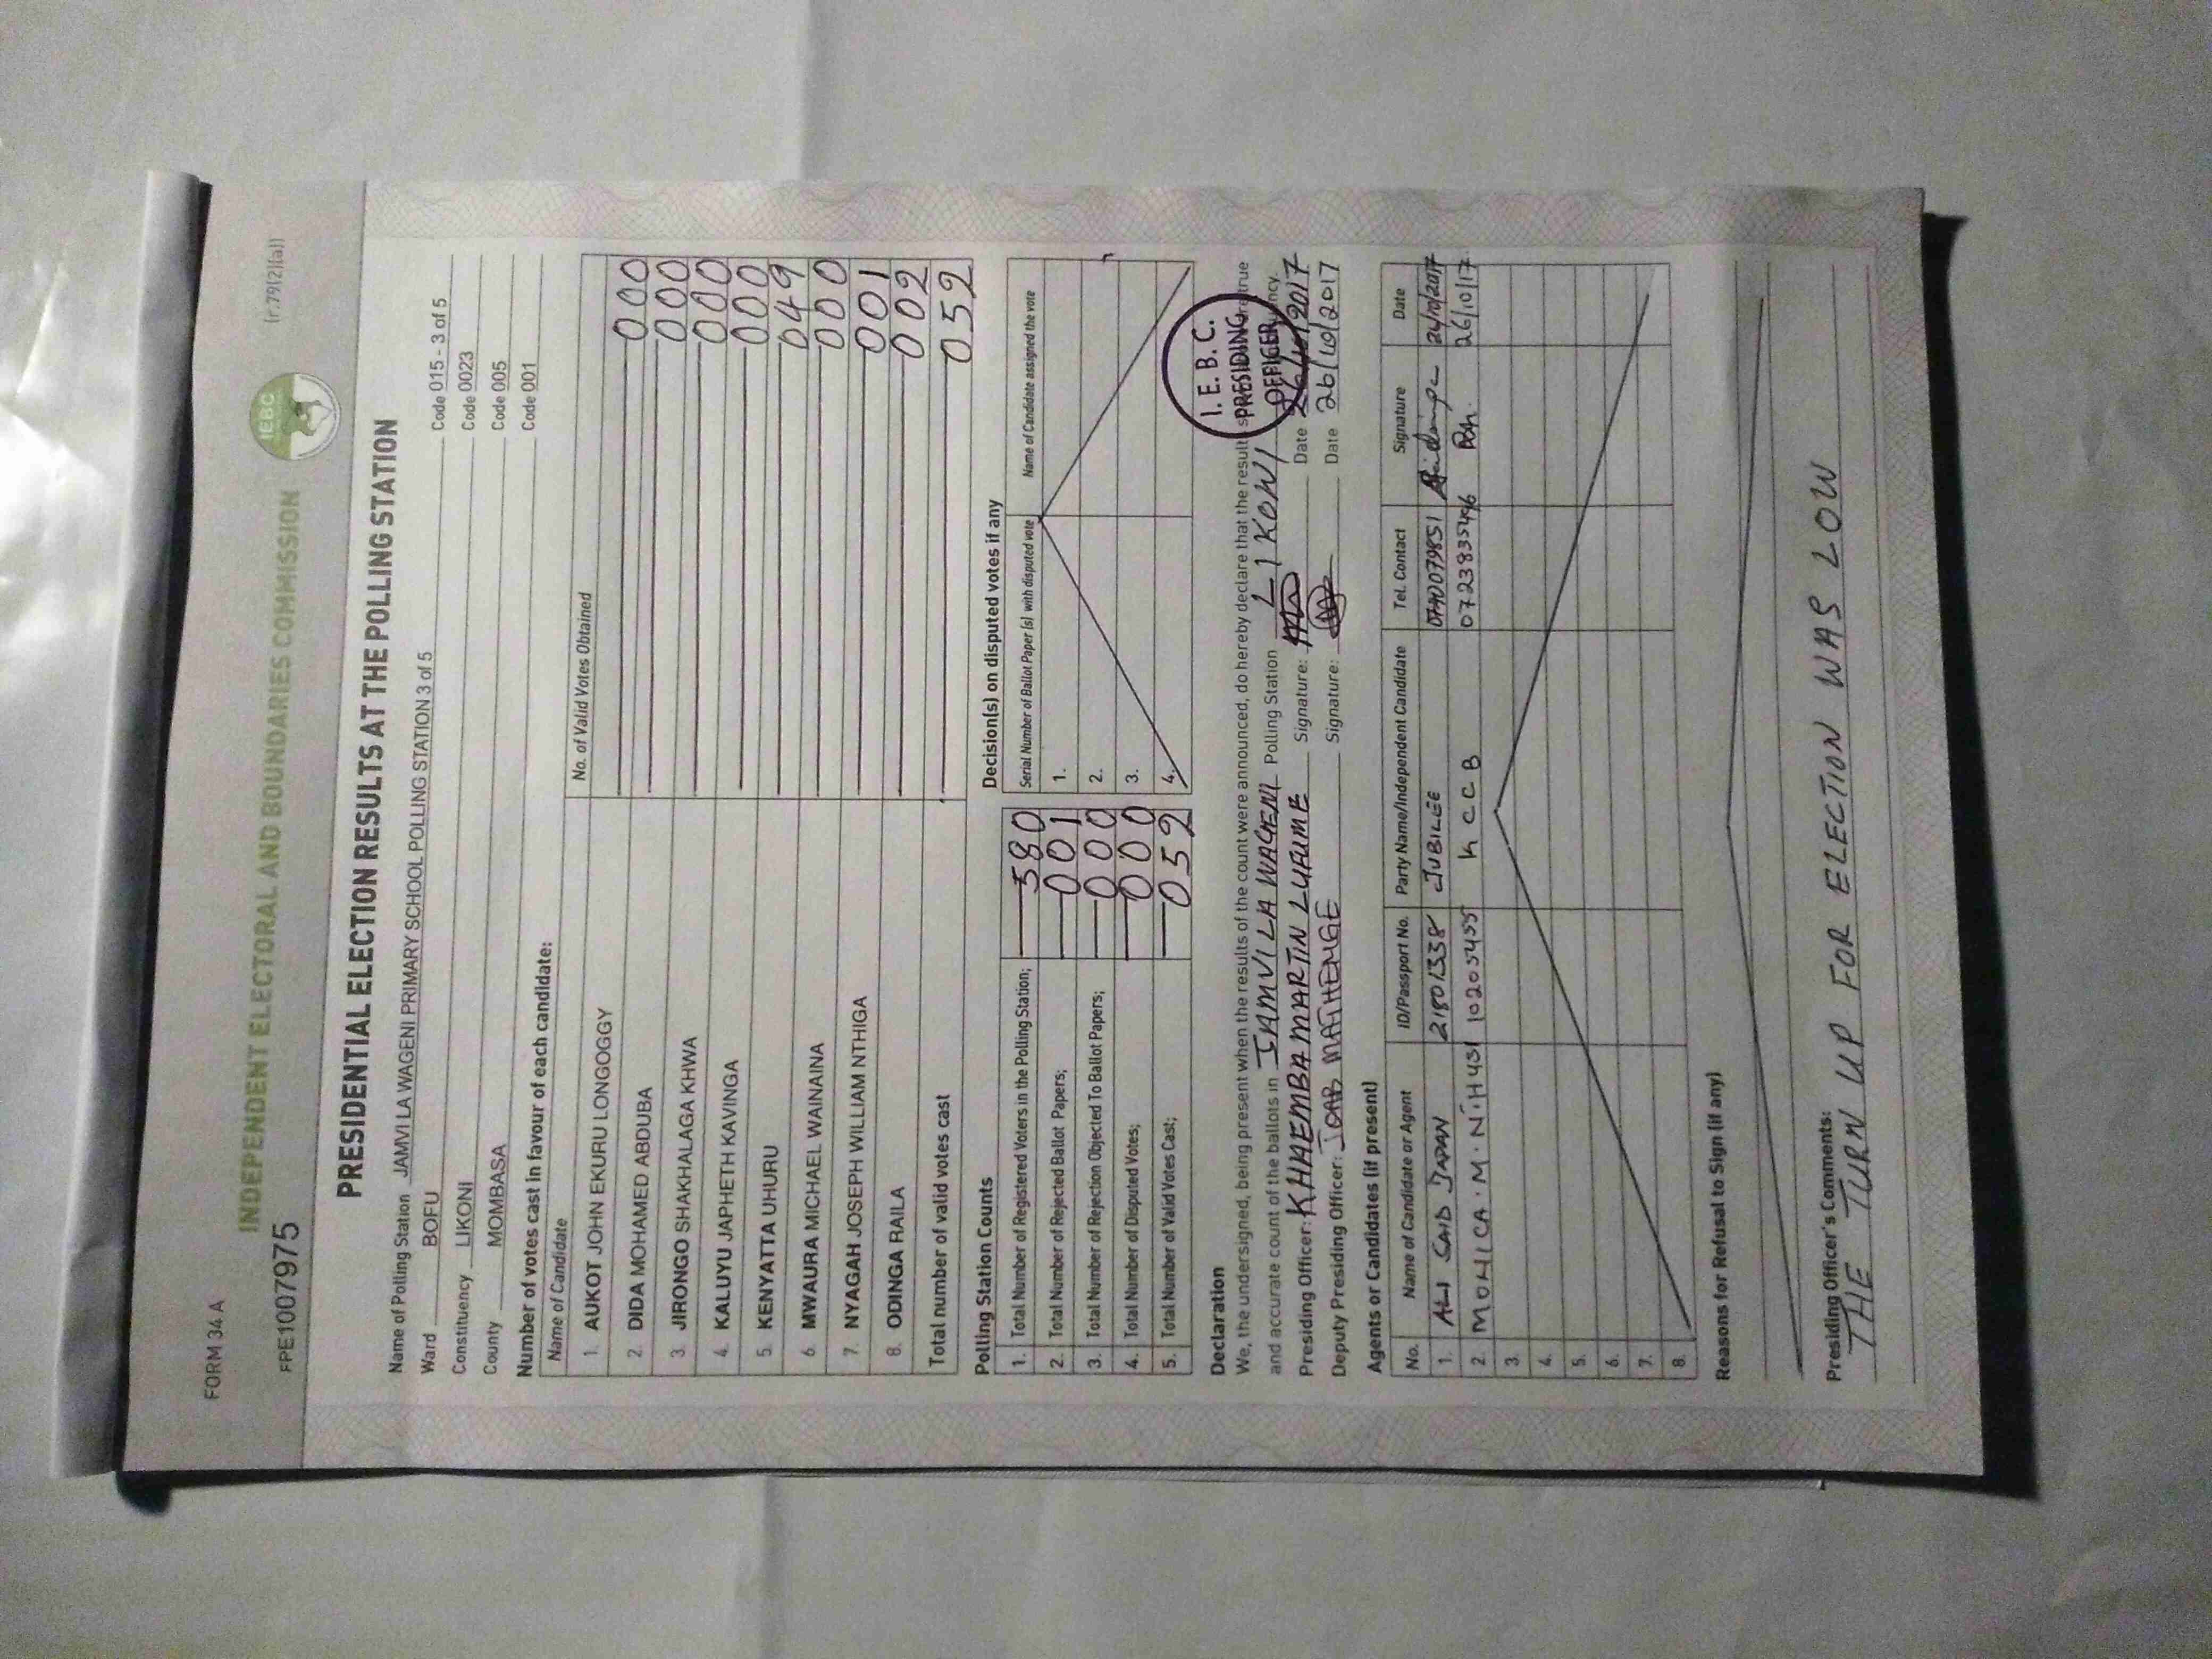 FORM 34 A
INDEPENDENT ELECTORAL AND BOUNDARIES COMMISSION
IEBC
(r.79(2)(a))
FPE1007975
PRESIDENTIAL ELECTION RESULTS AT THE POLLING STATION
Name of Polling Station JAMVI LA WAGENI PRIMARY SCHOOL POLLING STATION 3 of 5 Code 015 - 3 of 5
Ward BOFU Code 0023
Constituency LIKONI Code 005
County MOMBASA Code 001
Number of votes cast in favour of each candidate:
Name of Candidate No. of Valid Votes Obtained
1. AUKOT JOHN EKURU LONGOGGY 000
2. DIDA MOHAMED ABDUBA 000
3. JIRONGO SHAKHALAGA KHWA 000
4. KALUYU JAPHETH KAVINGA 000
5. KENYATTA UHURU 049
6. MWAURA MICHAEL WAINAINA 000
7. NYAGAH JOSEPH WILLIAM NTHIGA 001
8. ODINGA RAILA 002
Total number of valid votes cast 052
Polling Station Counts
1. Total Number of Registered Voters in the Polling Station; 580
2. Total Number of Rejected Ballot Papers; 001
3. Total Number of Rejection Objected To Ballot Papers; 000
4. Total Number of Disputed Votes; 000
5. Total Number of Valid Votes Cast; 052
Decision(s) on disputed votes if any
Serial Number of Ballot Paper (s) with disputed vote Name of Candidate assigned the vote
1.
2.
3.
4.
Declaration
We, the undersigned, being present when the results of the count were announced, do hereby declare that the results true
and accurate count of the ballots in JAMVI LA WAGENI Polling Station LIKONI
I. E. B. C.
PRESIDING
OFFICER
Presiding Officer: KHAEMBA MARTIN Signature: Date 26/10/2017
Deputy Presiding Officer: JOAB MATHENGE Signature: Date 26/10/2017
Agents or Candidates (if present)
No. Name of Candidate or Agent ID/Passport No. Party Name/Independent Candidate Tel. Contact Signature Date
1. ALI SAID JAPAN 21801338 JUBILEE 0740079851
2. MONICA . M . 10205455 0723835496 26/10/17
3.
4.
5.
6.
7.
8.
Reasons for Refusal to Sign (if any)
Presiding Officer's Comments:
THE TURN UP FOR ELECTION WAS LOW